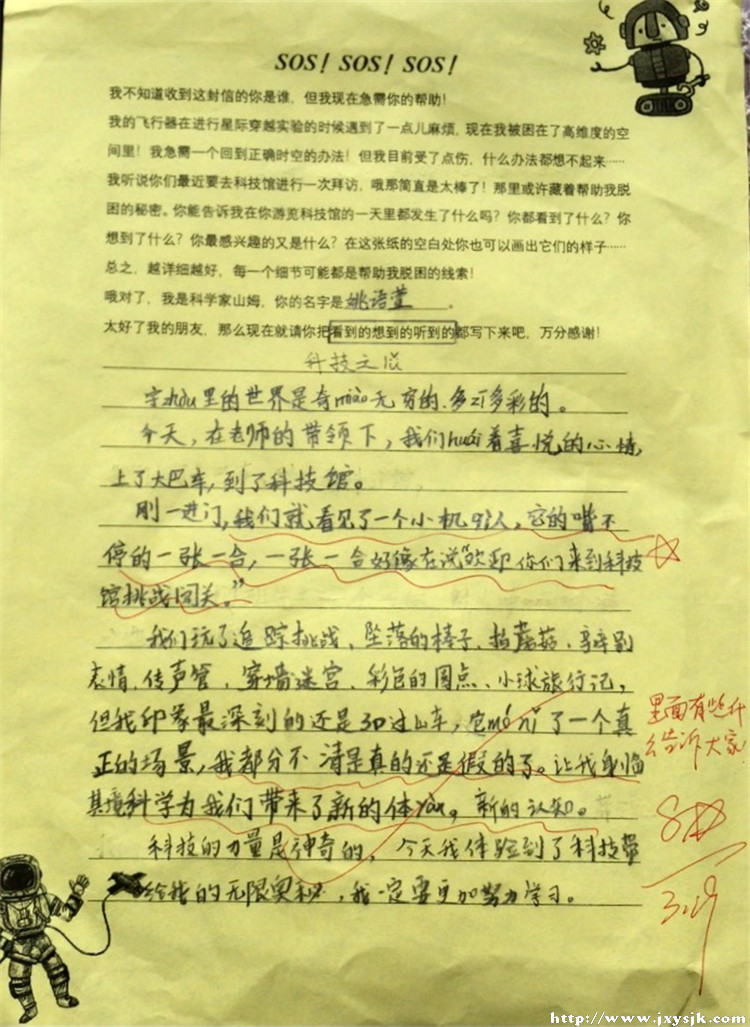 SOS! SOS! SOS!
我不知道收到这封信的你是谁，但我现在急需你的帮助！
我的飞行器在进行星际穿越实验的时候遇到了一点儿麻烦，现在我被困在了高维度的空
间里！我急需一个回到正确时空的办法！但我目前受了点伤，什么办法都想不起来……
我听说你们最近要去科技馆进行一次拜访，哦那简直是太棒了！那里或许藏着帮助我脱
困的秘密。你能告诉我在你游览科技馆的一天里都发生了什么吗？你都看到了什么？你
想到了什么？你最感兴趣的又是什么？在这张纸的空白处你也可以画出它们的样子……
总之，越详细越好，每一个细节可能都是帮助我脱困的线索！
哦对了，我是科学家山姆，你的名字是姚语萱。
太好了我的朋友，那么现在就请你把看到的想到的听到的都写下来吧，万分感谢！
科技之旅
宇zhòu里的世界是奇miào无穷的、多zī多彩的。
今天，在老师的带领下，我们huái着喜悦的心情，
上了大巴车，到了科技馆。
刚一进门，我们就看见了一个小机qì人，它的嘴不
停的一张一合，一张一合好像在说“欢迎你们来到科技
馆挑战闯关。”
我们玩了追踪挑战、坠落的棒子、拍蘑菇、辛辛别
表情、传声管、穿墙迷宫、彩色的圆点、小球旅行记，
但我印象最深刻的还是3D过山车，它mó nǐ了一个真
正的场景，我都分不清是真的还是假的了。让我身临
其境科学为我们带来了新的体yàn，新的认知。
科技的力量是神奇的，今天我体验到了科技带
给我的无限奥秘，我一定要更加努力学习。
里面有些什
么告诉大家
8☆
3.19
http://www.jxysjk.com